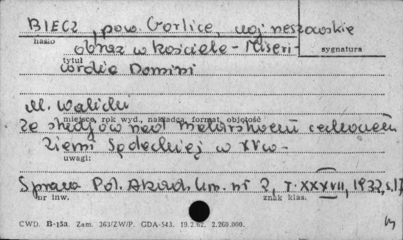 BIECZ, pow Gorlice, woj rzeszowskie
hasło
obraz w kościele - Miseri-
sygnatura
tytuł
cordia Domini
M. Walicki
miejsce, rok wyd., nakładca, format, objętość
Ze studjów nad malarstwem cechowem
Ziemi Sądeckiej w XV w -
uwagi:
Spraw. Pol. Akad. Um. nr 2, T. XXXVII, 1932, s. 17
nr inw.
znak klas.
CWD. B-15a. Zam. 363/ZW/P. GDA-543. 19.2.62. 2.260.000.